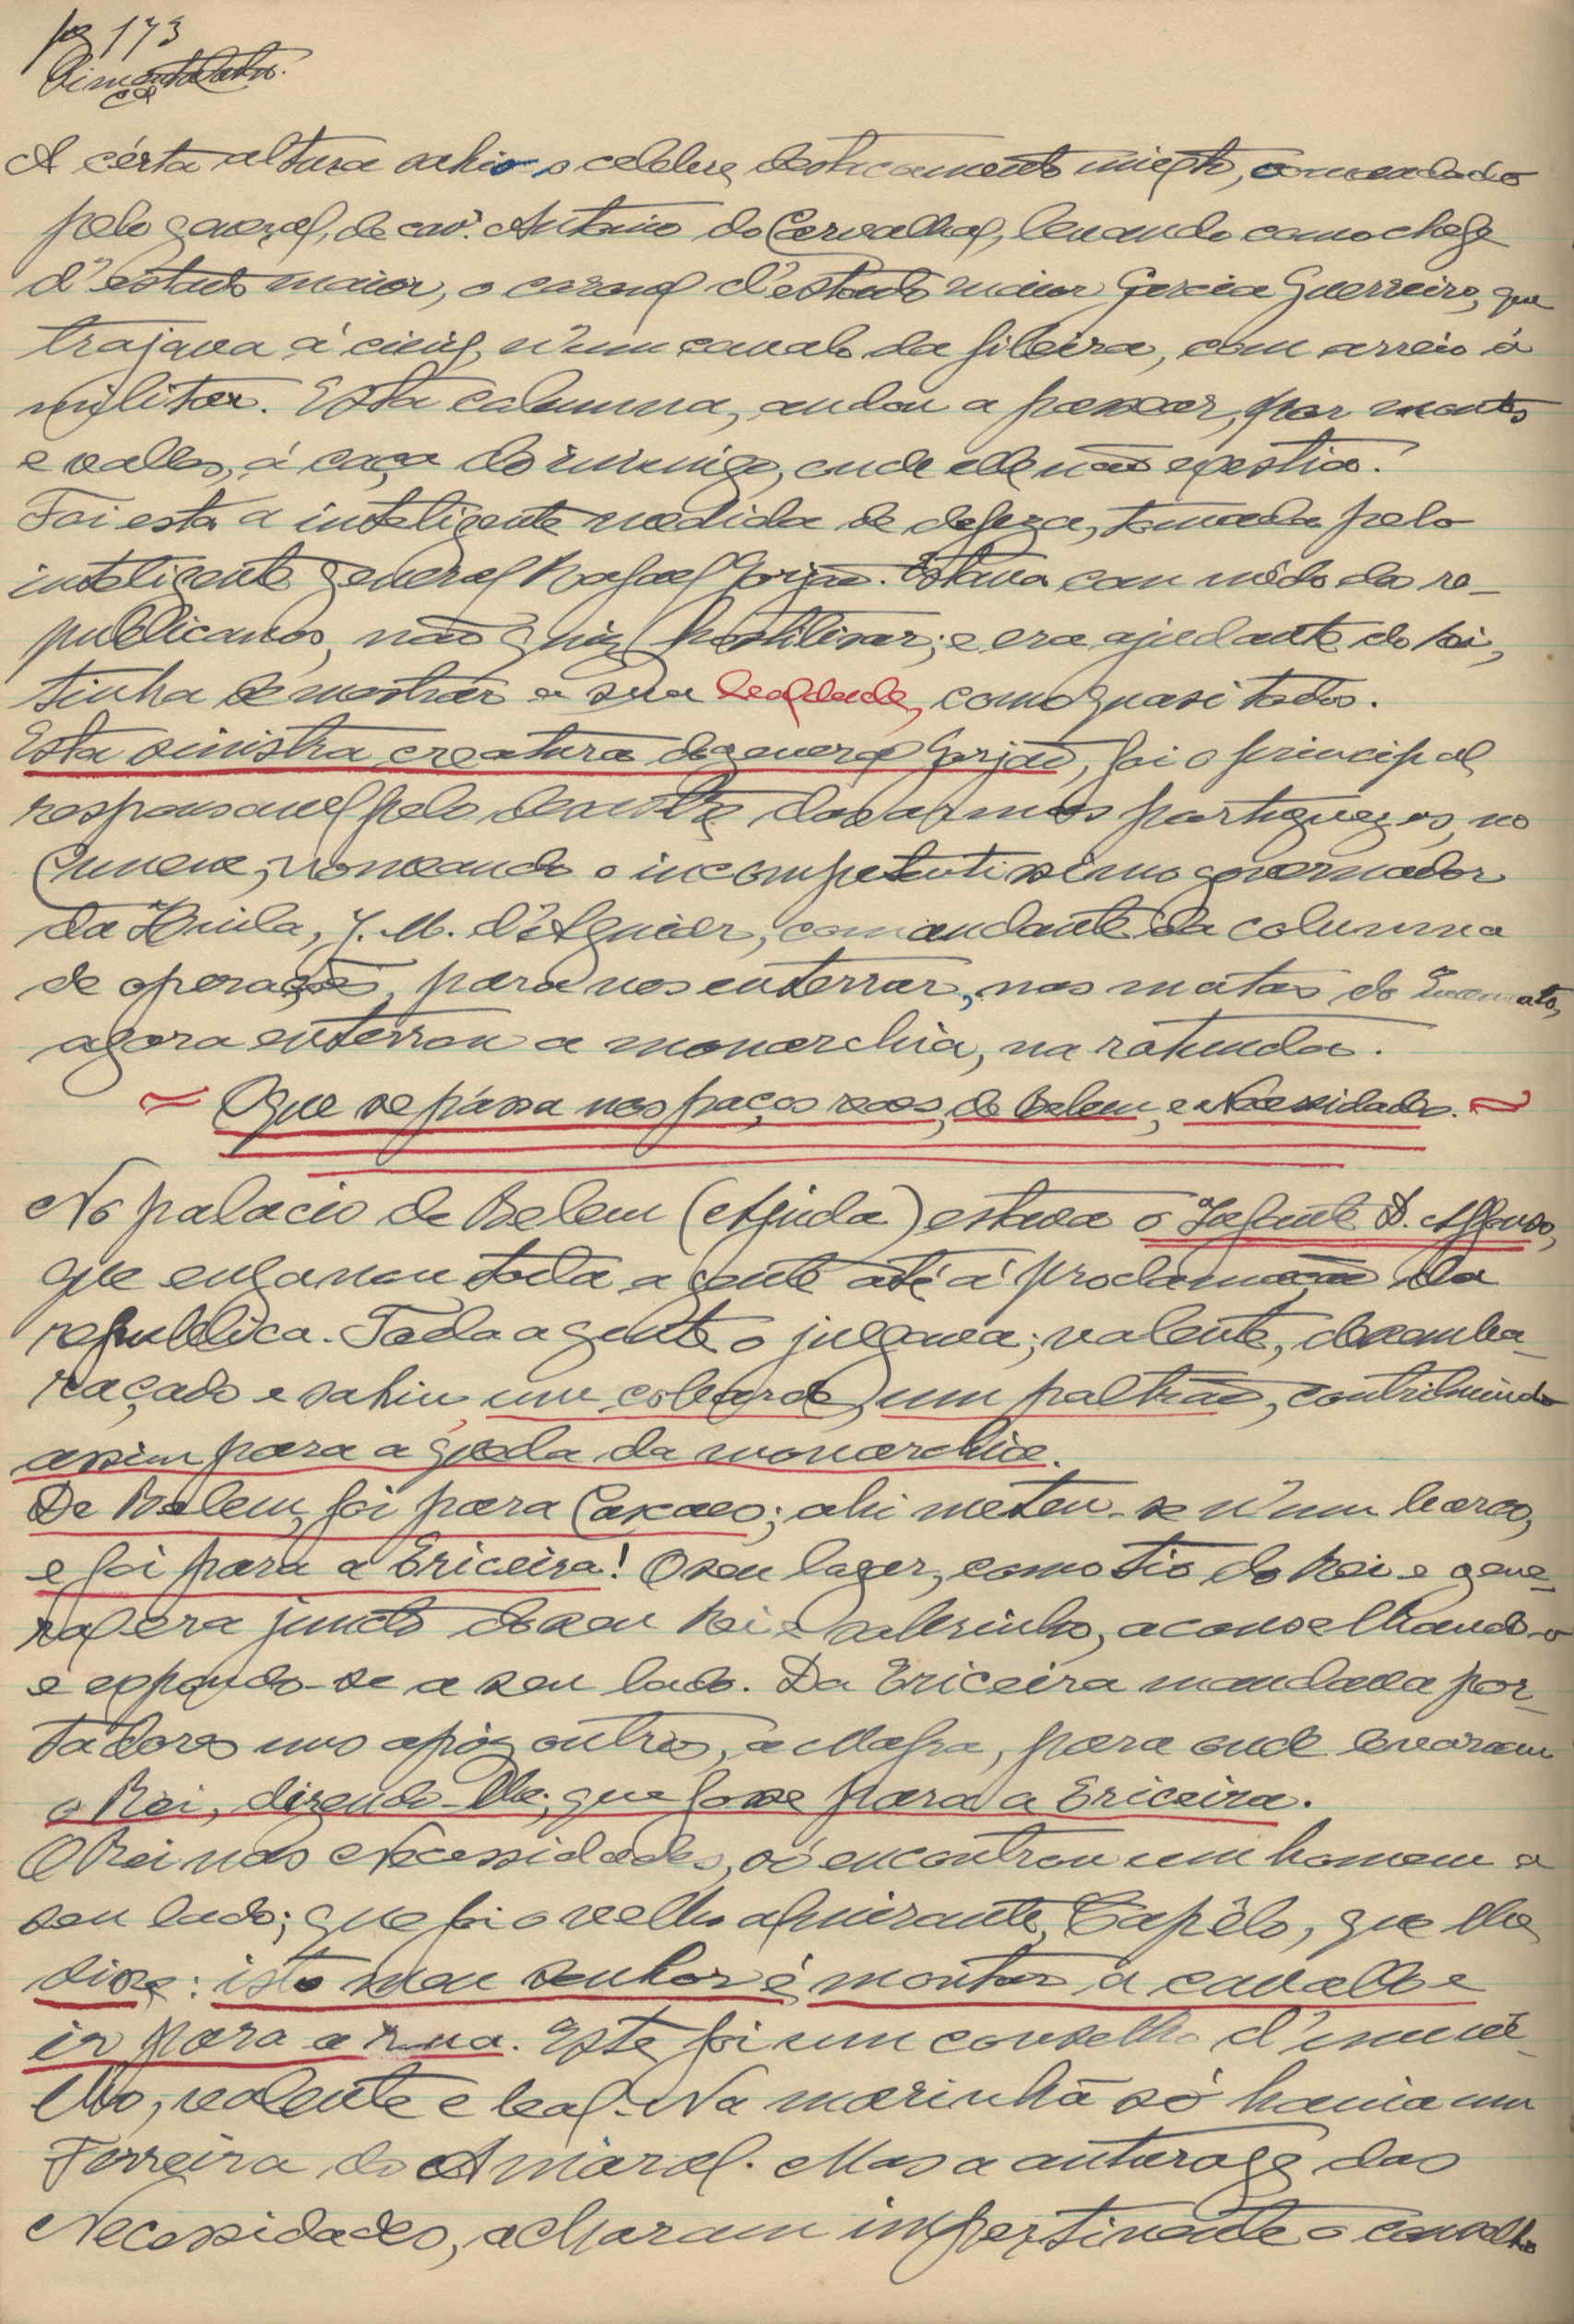 pg 173
A cérta altura sahio o celebre destacamento mixto, comandado
pelo general, de cavª. Antonio do Carvalhal, levando como chefe
d'estado maior, o coronel d'estado maior Garcia Guerreiro, que
trajava á civil, n'um cavalo da fileira, com arreio á
militar. Esta columna, andou a passear, por montes
e valles, á caça do inimigo, onde elle não existia.
Foi esta a inteligente medida de defeza, tomada pelo
inteligente general Rafael Gorjão. Estava com mêdo da re-
publicanos, não quiz hostilisar; e era ajudante do Rei,
tinha de mostrar a sua lealdade, como quasi todos.
Esta sinistra creatura do general Gorjão, foi o principal
responsavel pelo desastre das armas portuguezas, no
Cunene, nomeando o incompetentissimo governador
da Huila, J. M. d'Aguiar, comandante da columna
de operações, para nos enterrar, nas matas do Cuamato,
agora enterrou a monarchia, na rotunda.
= O que se pássa nos paços reaes, de Belem, e Necessidades. =
No palacio de Belem (Ajuda) estava o Infante D. Affonso,
que enganou toda a gente até á proclamação da
republica. Toda a gente o julgava; valente, desemba-
raçado e sahiu um cobarde, um paltrão, contribuindo
assim para a quéda da monarchia.
De Belem, foi para Cascaes; ahi meteu-se n'um barco,
e foi para a Ericeira! O seu logar, como tio do Rei e gene-
ral era juncto do seu Rei e sobrinho, aconselhando-o
e expondo-se a seu lado. Da Ericeira mandava por-
tadores uns após outros, a Mafra, para onde levaram
o Rei, dizendo-lhe, que fosse para a Ericeira.
O Rei nas Necessidades, só encontrou um homem a
seu lado; que foi o velho almirante, Capêlo, que lhe
disse: isto meu senhor é montar a cavallo e
ir para a rua. Este foi um conselho d'um vê-
lho, valente e leal. Na marinha só havia um
Ferreira do Amaral. Mas a anturage das
Necessidades, acharam impertinente o conselho